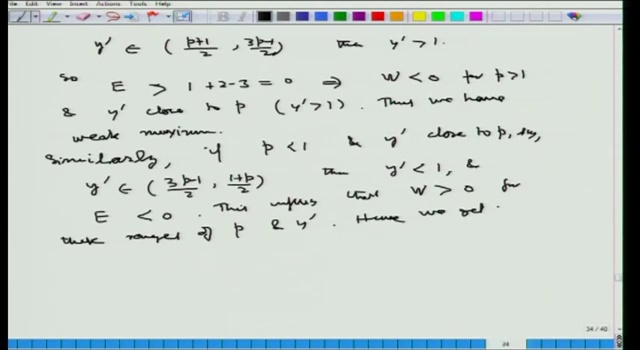 File View Insert Actions Tools Help
y' ∈ (p+1/2, 3p-1/2) then y' > 1.
so E > 1 + 2 - 3 = 0 ⇒ W < 0 for p > 1
& y' close to p (y' > 1). Thus we have
weak maximum.
Similarly, if p < 1 & y' close to p, say,
y' ∈ (3p-1/2, 1+p/2) then y' < 1, &
E < 0. This implies that W > 0 for
these ranges of p & y'. Hence we get
34 / 40
34